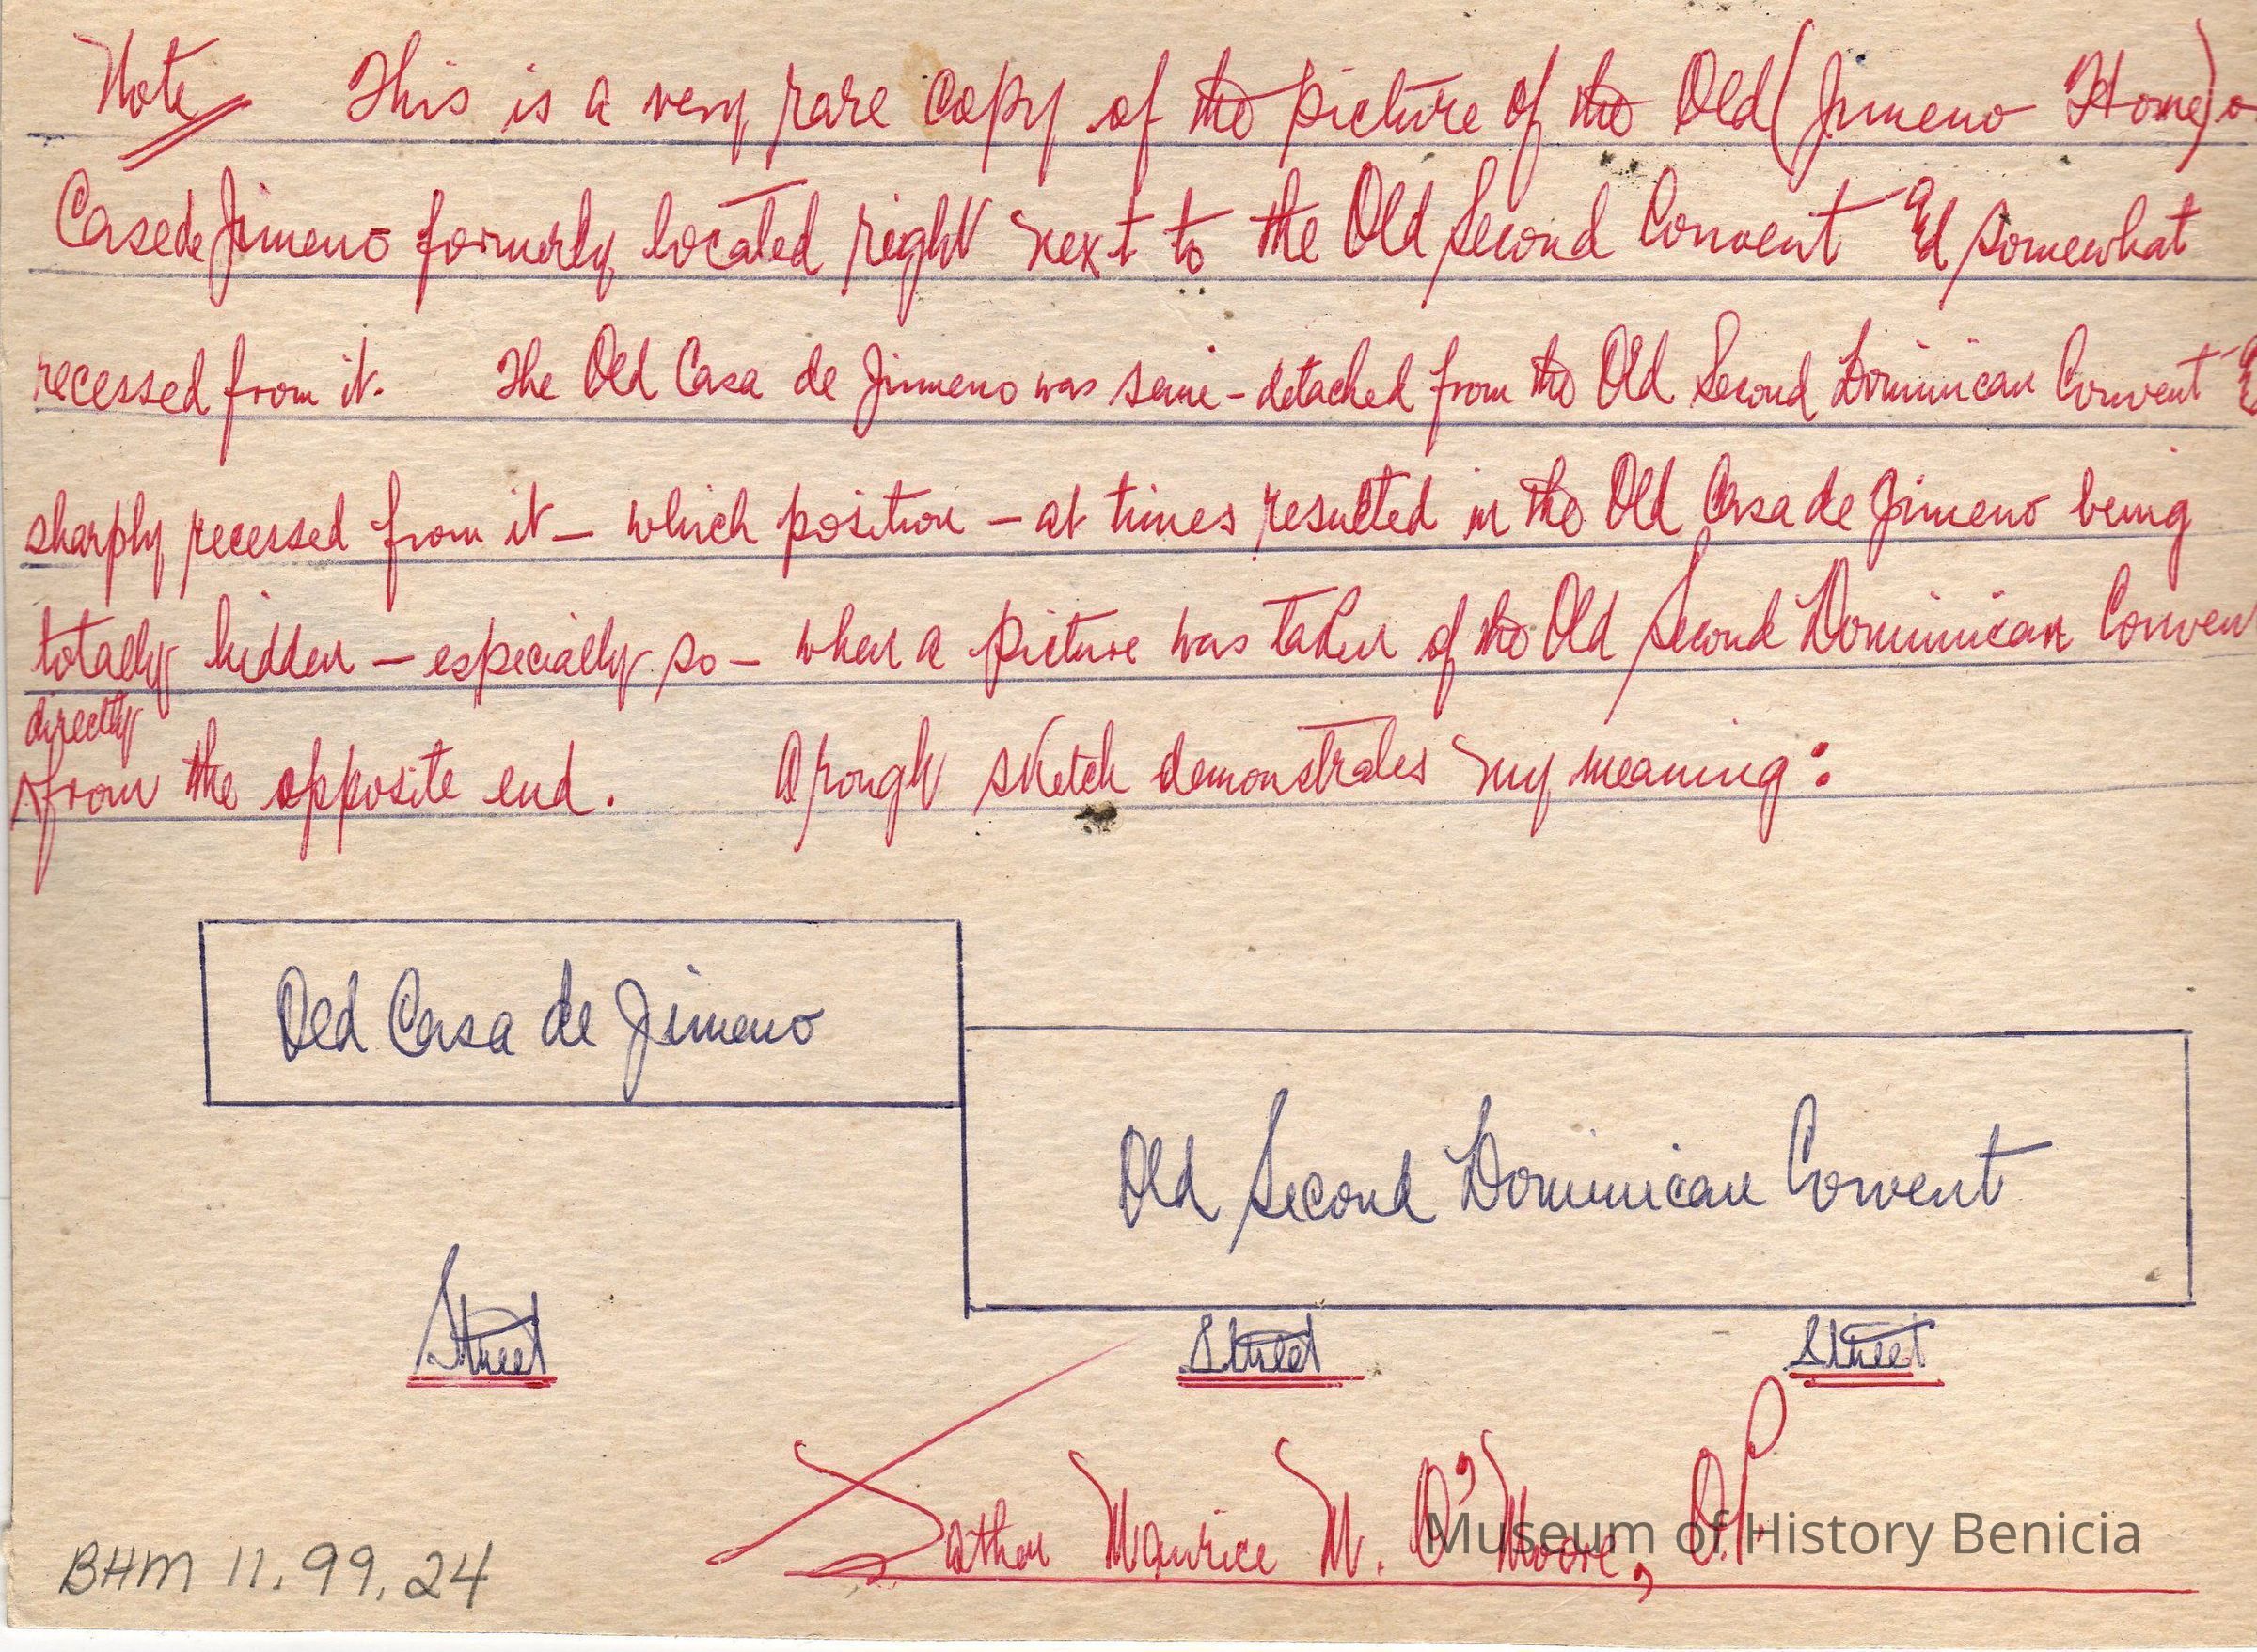 Note This is a very rare copy of the picture of the Old (Jimeno Home) o
Casede Jimeno formerly located right next to the Old Second Convent & somewhat
recessed from it. The Old Casa de Jimeno was semi-detached from the Old Second Dominican Convent &
sharply recessed from it — which position — at times resulted in the Old Casa de Jimeno being
totally hidden — especially so — when a picture was taken of the Old Second Dominican Conven
directly
from the opposite end. A rough sketch demonstrates my meaning:
Old Casa de Jimeno
Old Second Dominican Convent
Street Street Street
Father Maurice M. O'Moore, O.P.
Museum of History Benicia
BHM 11.99.24